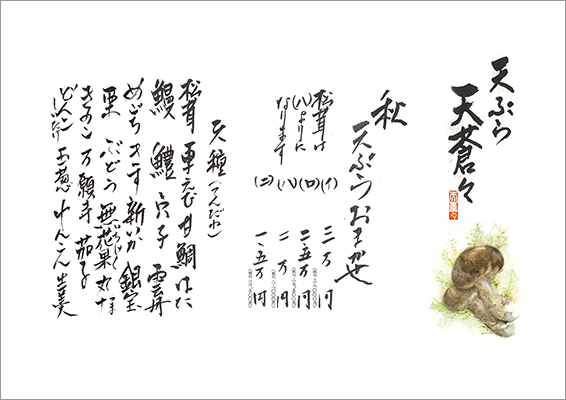 天ぷら
天蒼々
秋
天ぷらおまかせ
(イ) 三万円
(ロ) 二・五万円
(ハ) 二万円
(ニ) 一・五万円
松茸は
(ハ)よりに
なります
天種(てんだね)
松茸 車えび 甘鯛 はた
鰻 鱧 穴子 雲丹
めごち きす 新いか 銀宝
栗 ぶどう 無花果 丸十
きのこ 万願寺 茄子
玉葱 れんこん 生姜